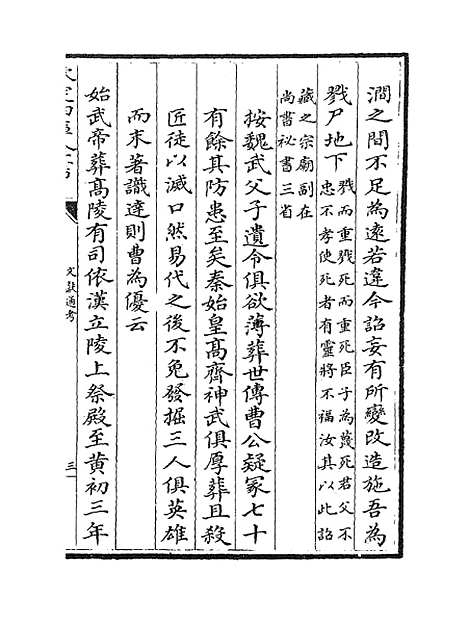 澗之間不足為逺若違今詔妄有所變改造施吾為
戮尸地下戮而重戮死而重死臣子為蔑死君父不
忠不孝使死者有靈將不福汝其以此詔
藏之宗廟副在
尚書秘書三省
按魏武父子遺令俱欲薄葬世傳曹公疑冢七十
有餘其防患至矣秦始皇髙齊神武俱厚葬且殺
匠徒以滅口然易代之後不免發掘三人俱英雄
而末著識達則曹為優云
始武帝葬髙陵有司依漢立陵上祭殿至黄初三年
欽定四庫全書
文獻通考
三